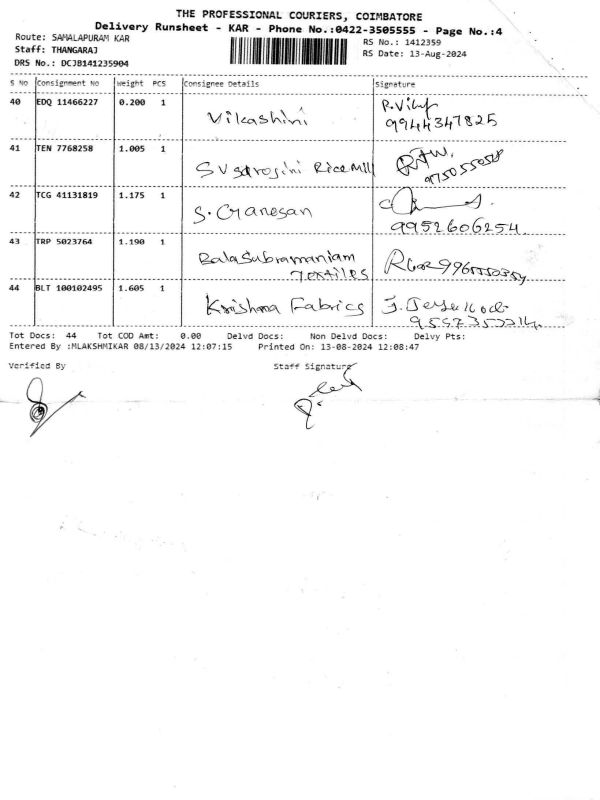 THE PROFESSIONAL COURIERS, COIMBATORE
Delivery Runsheet - KAR - Phone No.:0422-3505555 - Page No.:4
Route: SAMALAPURAM KAR
RS No.: 1412359
Staff: THANGARAJ
RS Date: 13-Aug-2024
DRS No.: DCJB141235904
S No Consignment No Weight PCS Consignee Details Signature
40 EDQ 11466227 0.200 1
Vikashini
9944347825
41 TEN 7768258 1.005 1
Rice Mill
975055058
42 TCG 41131819 1.175 1
S. Ganesan
9952606254
43 TRP 5023764 1.190 1
Balasubramaniam
Textiles
44 BLT 100102495 1.605 1
Krishna Fabrics
Tot Docs: 44 Tot COD Amt: 0.00 Delvd Docs: Non Delvd Docs: Delvy Pts:
Entered By :MLAKSHMIKAR 08/13/2024 12:07:15 Printed On: 13-08-2024 12:08:47
Verified By Staff Signature